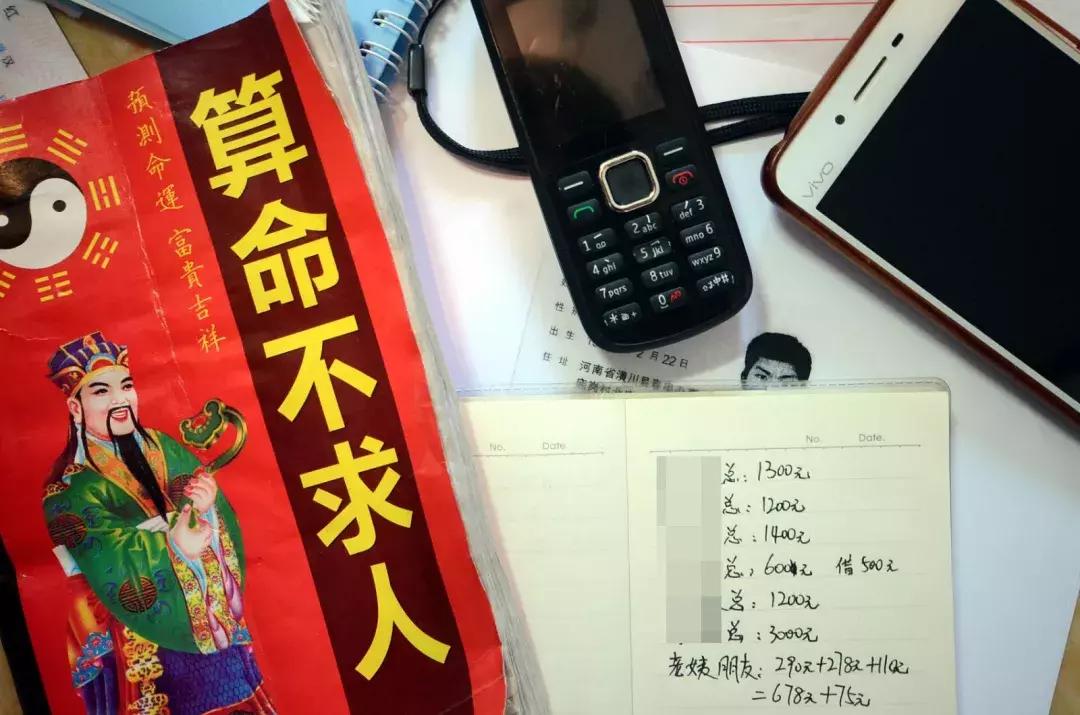 算命不求人
預測命運 富貴吉祥
vivo
1
2 abc
def 3
4 ghi
5 jkl
mno 6
7 pqrs
8 tuv
wxyz 9
0
出生
2月22日
住址 河南省潢川县
No. Date.
No. Date.
总:1300元
总:1200元
总:1400元
总:600元 借500元
总:1200元
总:3000元
老姨朋友:290元+278元+110元
=678元+75元